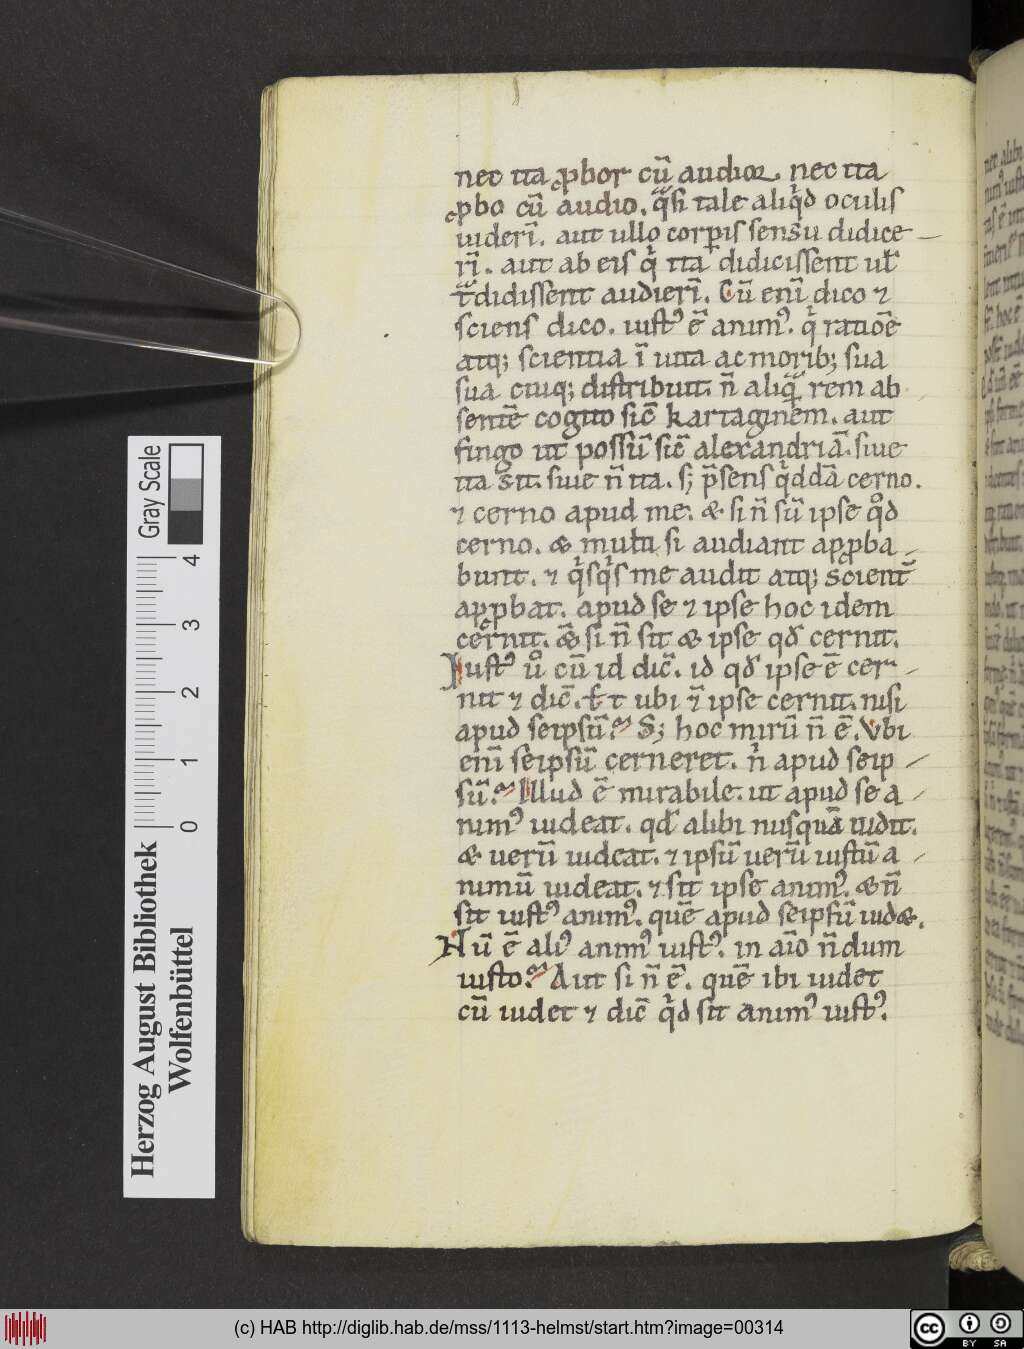 nec ita ꝓbor cū audior. nec ita
ꝓbo cū audio. qͣsi tale aliqͥd oculis
uiderī. aut ullo corꝑis sensu didice
rī. aut ab eis qͥ ita didicissent uł
tͣdidissent audierī. Cū enī dico ⁊
sciens dico. iustꝰ ē animꝰ. qͥ ratiōe
atq; scientia ī uita ac morib; sua
sua cuiq; distribuit. n̄ aliqͣ rem ab
sentē cogito sic̄ kartaginem. aut
fingo ut possū sic̄ alexandriā. siue
ita sit. siue n̄ ita. s; p̄sens qͥddā cerno.
⁊ cerno apud me. & si n̄ sū ipse qͦd
cerno. & multi si audiant apꝓba
bunt. ⁊ qͥsqͥs me audit atq; scient̄
apꝓbat. apud se ⁊ ipse hoc idem
cernit. &̄ si n̄ sit & ipse qđ cernit.
Iustꝰ uͦ cū id dic̄. id qđ ipse ē cer
nit ⁊ dic̄. & ubi ⁊ ipse cernit. nisi
apud seipsū? S; hoc mirū n̄ ē. Vbi
enī seipsū cerneret. nͥ apud seip
sū? Illud ē mirabile. ut apud se a
nimꝰ uideat. qđ alibi nusquā uidit.
& uerū uideat. ⁊ ipsū uerū iustū a
nimū uideat. ⁊ sit ipse animꝰ. & n̄
sit iustꝰ animꝰ. quē apud seipsū uid&.
Nū ē aliꝰ animꝰ iustꝰ. in aīo n̄dum
iusto? Aut si n̄ ē. quē ibi uidet
cū uidet ⁊ dic̄ qͥd sit animꝰ iustꝰ.
Gray Scale
4 3 2 1 0
Herzog August Bibliothek
Wolfenbüttel
(c) HAB http://diglib.hab.de/mss/1113-helmst/start.htm?image=00314
cc BY SA